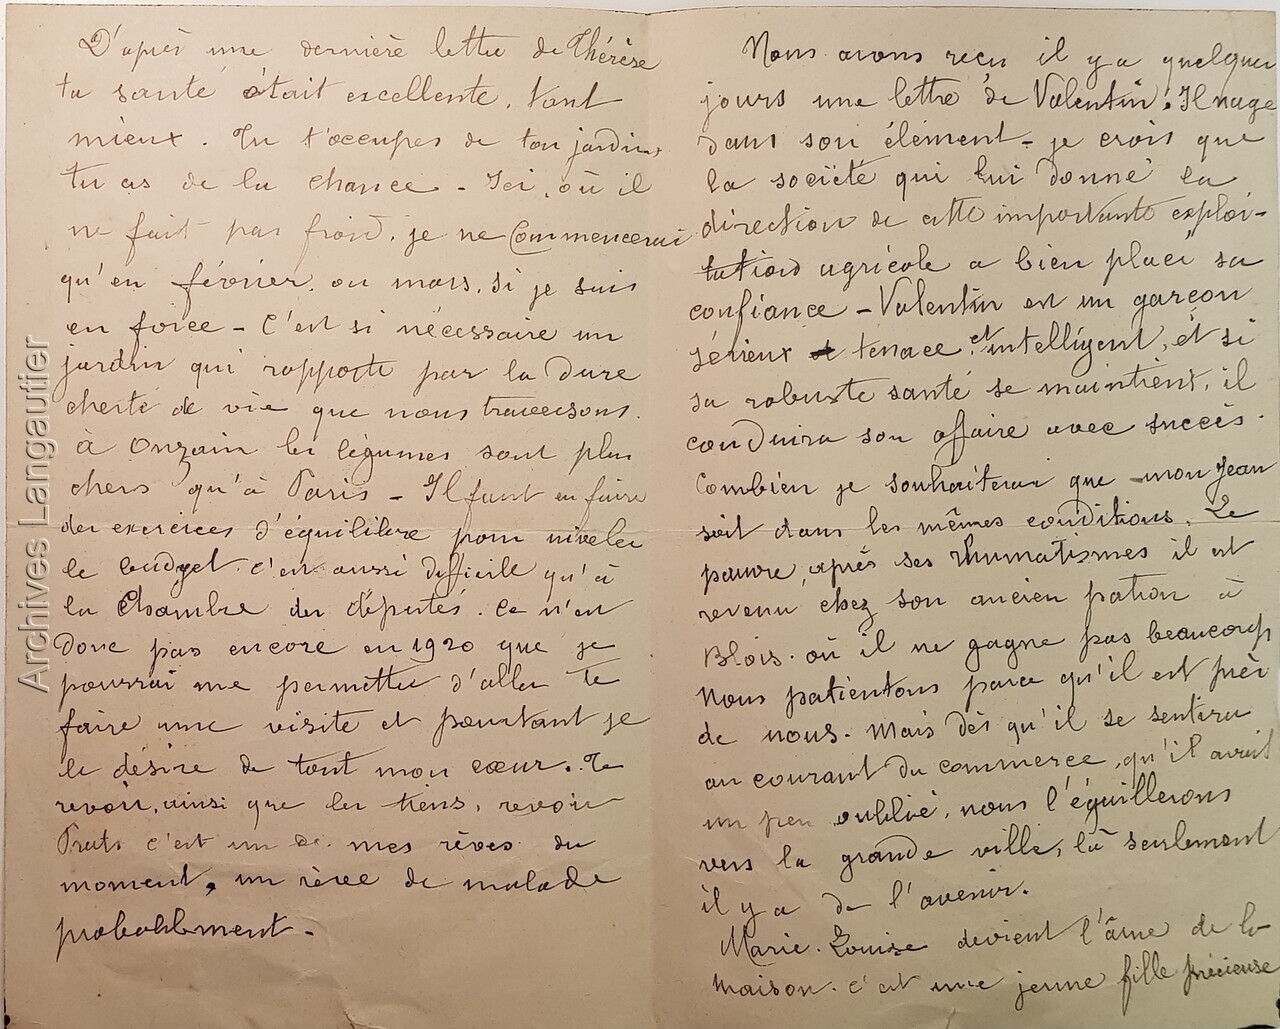 D'après une dernière lettre de Thérèse
ta santé était excellente, tant
mieux. Tu t'occupes de ton jardin,
tu as de la chance - Ici, où il
ne fait pas froid, je ne commencerai
qu'en février, ou mars, si je suis
en force - C'est si nécessaire un
jardin qui rapporte par la dure
cherté de vie que nous traversons.
à Onzain les légumes sont plus
chers qu'à Paris - Il faut en faire
des exercices d'équilibre pour niveler
le budget. c'en aussi difficile qu'à
la Chambre des députés. Ce n'est
donc pas encore en 1920 que je
pourrai me permettre d'aller te
faire une visite et pourtant je
le désire de tout mon cœur. Te
revoir, ainsi que les tiens, revoir
Prats c'est un de mes rêves du
moment, un rêve de malade
probablement -
Nous avons reçu il y a quelques
jours une lettre de Valentin. Il nage
dans son élément - je crois que
la société qui lui donne la
direction de cette importante exploi-
tation agricole a bien placé sa
confiance - Valentin est un garçon
sérieux tenace, et intelligent, et si
sa robuste santé se maintient, il
conduira son affaire avec succès.
Combien je souhaiterai que mon Jean
soit dans les mêmes conditions. Le
pauvre, après ses rhumatismes il est
revenu chez son ancien patron à
Blois. où il ne gagne pas beaucoup
Nous patientons parce qu'il est près
de nous. Mais dès qu'il se sentira
au courant du commerce, qu'il avait
un peu oublié, nous l'éguillerons
vers la grande ville, là seulement
il y a de l'avenir.
Marie-Louise devient l'âme de la
maison. c'est une jeune fille précieuse
Archives Langautier